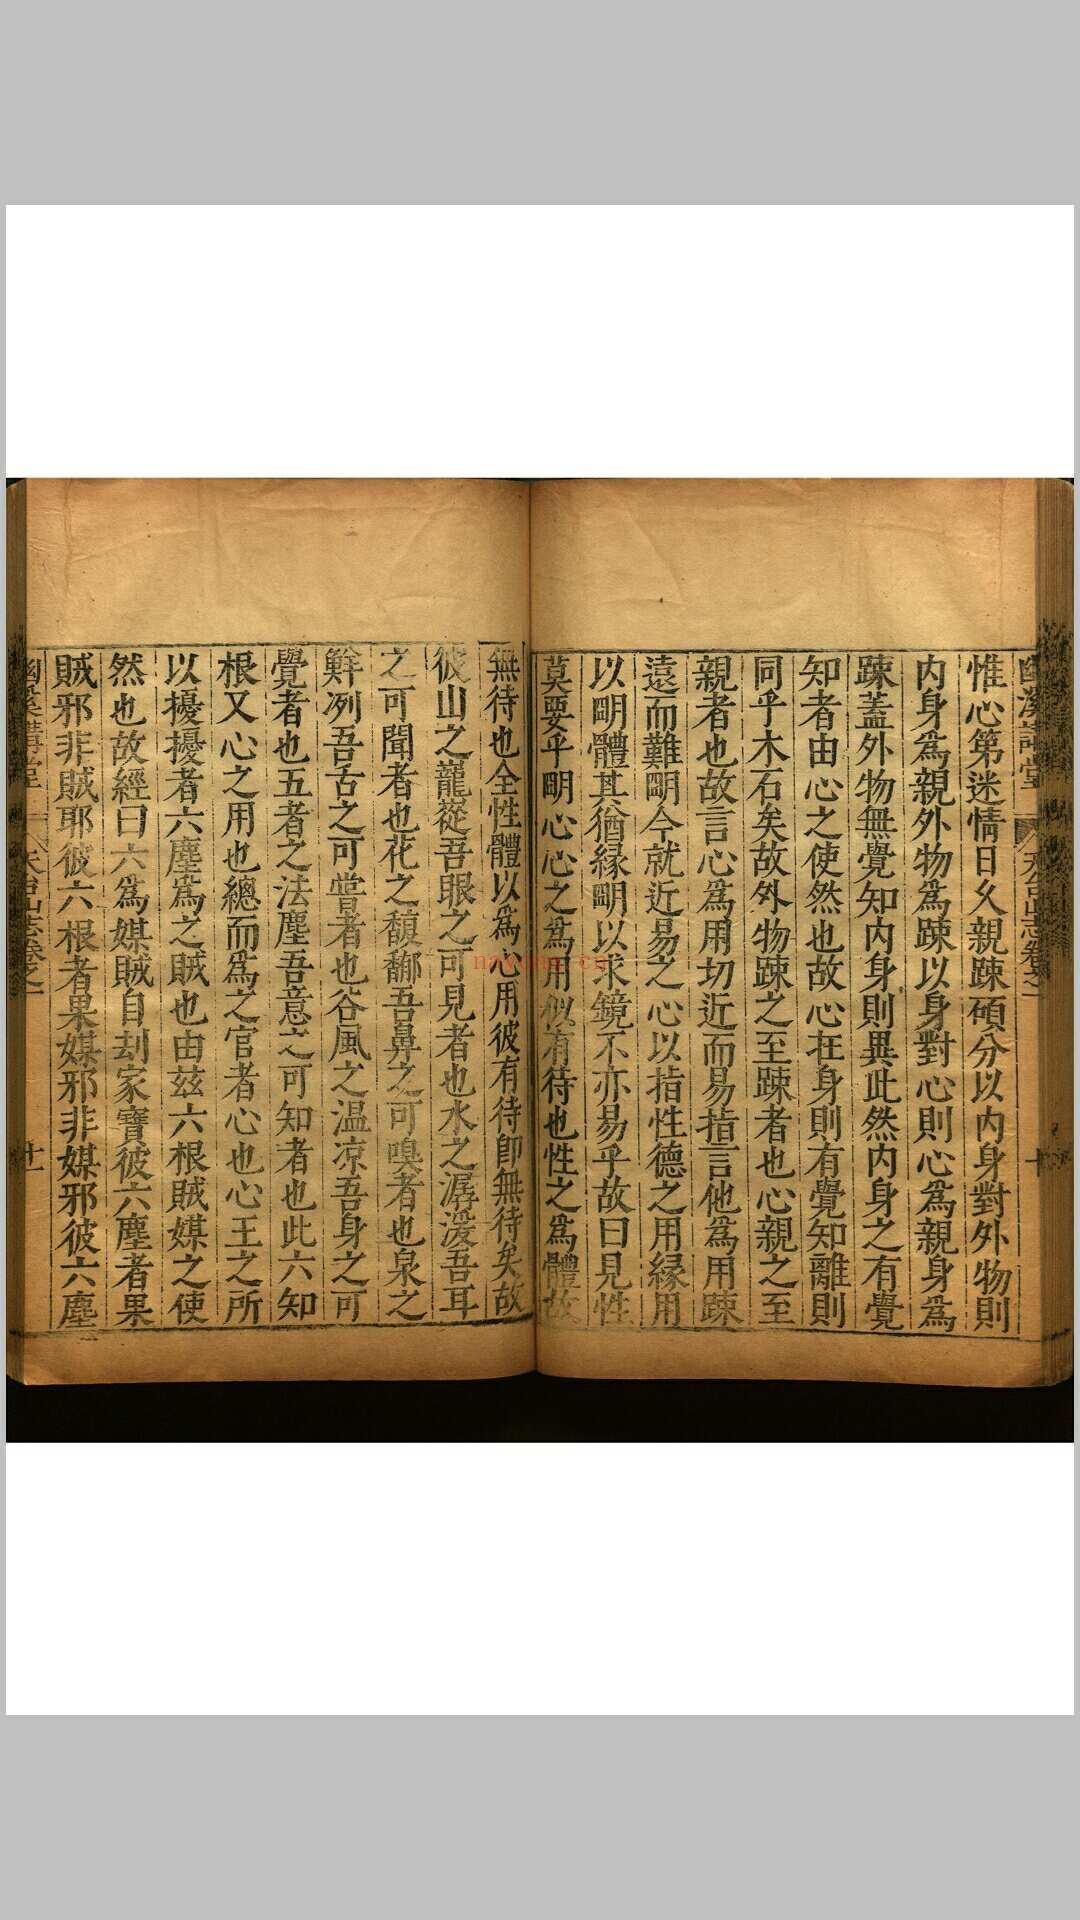 幽溪講堂 天台山志卷之一 十
惟心第迷情日久親踈碩分以内身對外物則
内身爲親外物爲踈以身對心則心爲親身爲
踈蓋外物無覺知内身則異此然内身之有覺
知者由心之使然也故心在身則有覺知離則
同乎木石矣故外物踈之至踈者也心親之至
親者也故言心爲用切近而易指言他爲用踈
遠而難眀今就近易之心以指性德之用緣用
以眀體其猶緣眀以求鏡不亦易乎故曰見性
莫要乎眀心心之爲用似有待也性之爲體故
無待也全性體以爲心用彼有待卽無待矣故
彼山之巃嵸吾眼之可見者也水之潺湲吾耳
之可聞者也花之馥郁吾鼻之可嗅者也泉之
鮮冽吾舌之可嘗者也谷風之温凉吾身之可
覺者也五者之法塵吾意之可知者也此六知
根又心之用也總而爲之官者心也心王之所
以擾擾者六塵爲之賊也由兹六根賊媒之使
然也故經曰六爲媒賊自刦家寶彼六塵者果
賊邪非賊耶彼六根者果媒邪非媒邪彼六塵
幽溪講堂 天台山志卷之一 十一
nayona.cn